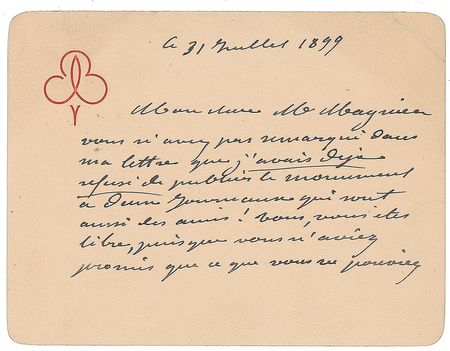 Ce 31 Juillet 1899
Mon cher Mr Magnier
vous n'avez pas remarqué dans
ma lettre que j'avais déjà
refusé de publier le monument
à deux journaux qui sont
aussi des amis! Vous, vous êtes
libre, puisque vous n'aviez
promis que ce que vous ne pouviez